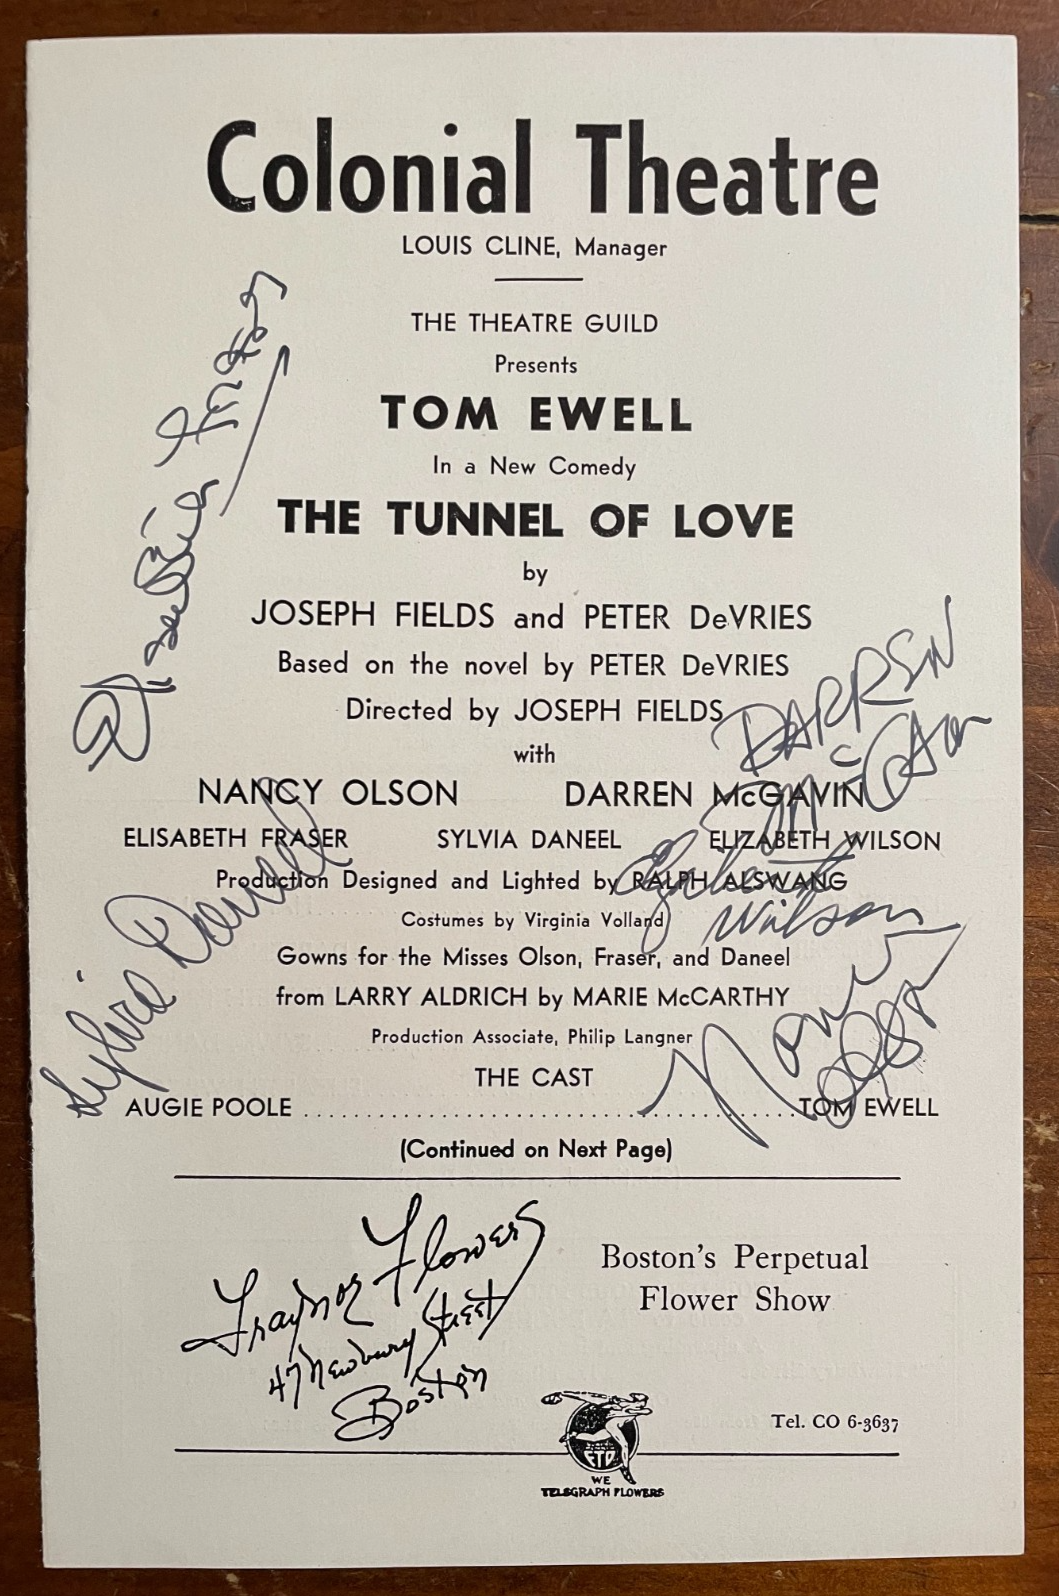 Colonial Theatre
LOUIS CLINE, Manager
THE THEATRE GUILD
Presents
TOM EWELL
In a New Comedy
THE TUNNEL OF LOVE
by
JOSEPH FIELDS and PETER DeVRIES
Based on the novel by PETER DeVRIES
Directed by JOSEPH FIELDS
with
NANCY OLSON DARREN McGAVIN
ELISABETH FRASER SYLVIA DANEEL ELIZABETH WILSON
Production Designed and Lighted by RALPH ALSWANG
Costumes by Virginia Volland
Gowns for the Misses Olson, Fraser, and Daneel
from LARRY ALDRICH by MARIE McCARTHY
Production Associate, Philip Langner
THE CAST
AUGIE POOLE ........ TOM EWELL
(Continued on Next Page)
DARREN
McGavin
Elizabeth
Wilson
Nancy
Olson
Sylvia Daneel
Traynor Flowers
47 Newbury Street
Boston
Boston's Perpetual
Flower Show
Tel. CO 6-3637
FTD
WE
TELEGRAPH FLOWERS